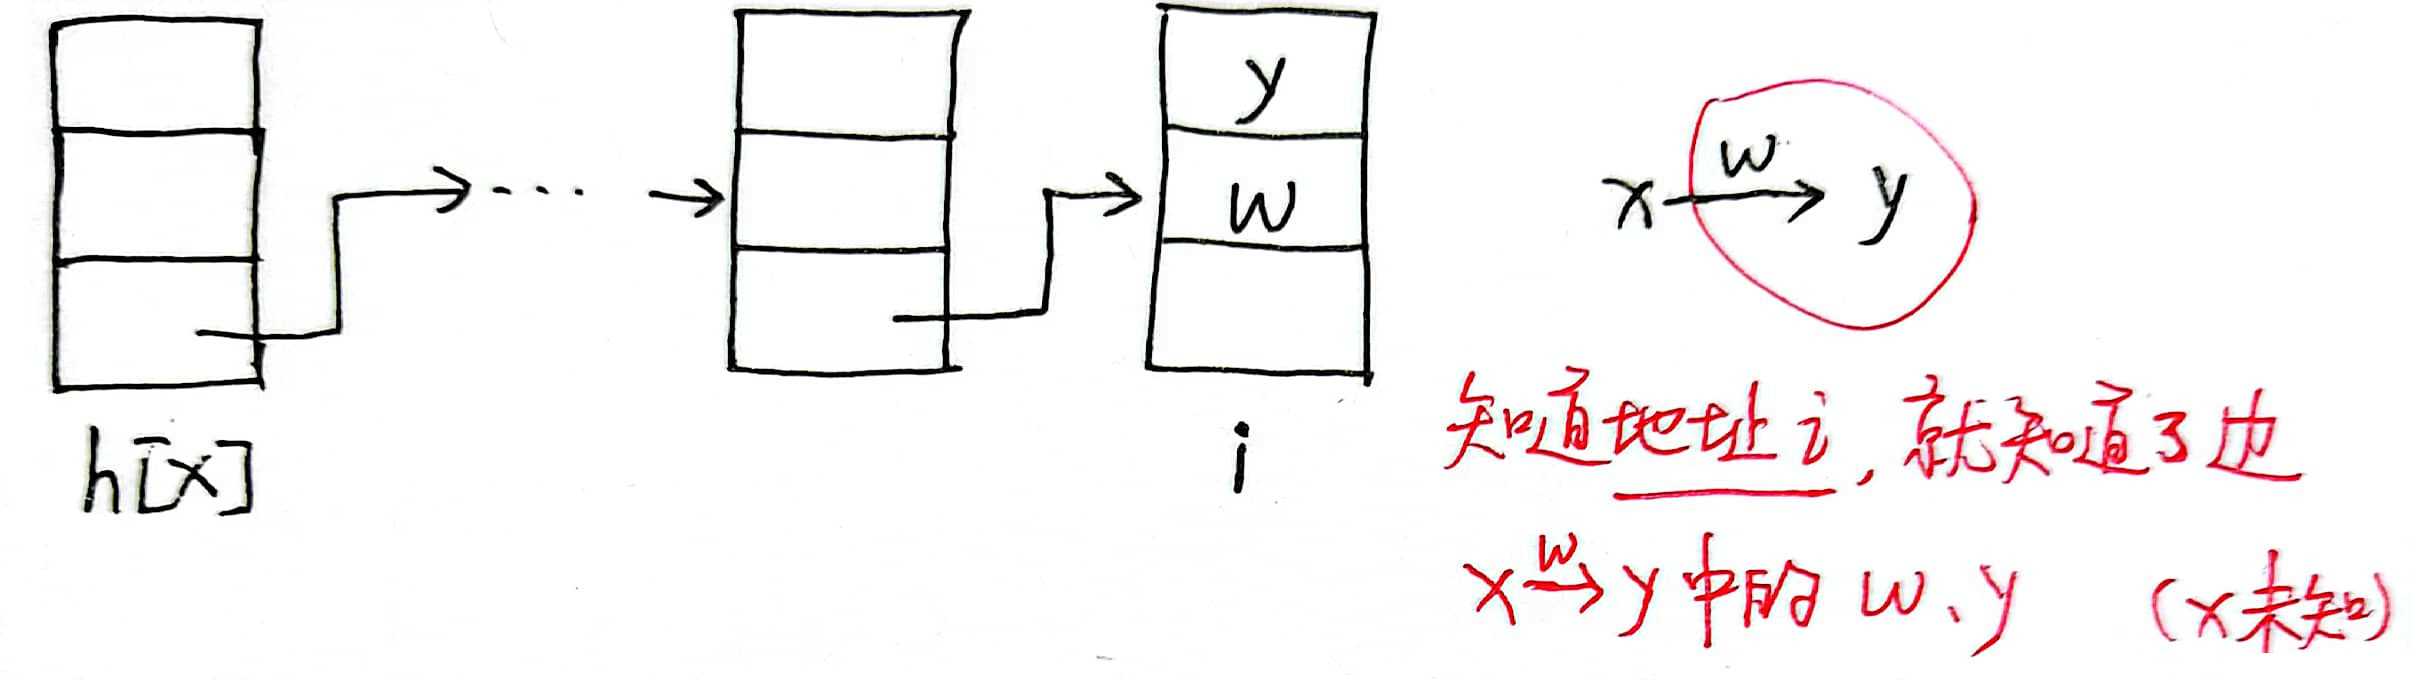 y
w
h[x]
i
x w→ y
知道地址i,就知道了边
x w→ y 中的 w、y (x未知)